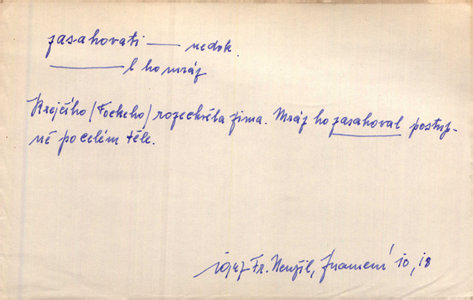 zasahovati — nedok.
——— l ho mráz
Krejčího /Fockeho/ rozechvěla zima. Mráz ho zasahoval postup-
ně po celém těle.
1947 Fr. Neužil, Znamení 10, 18